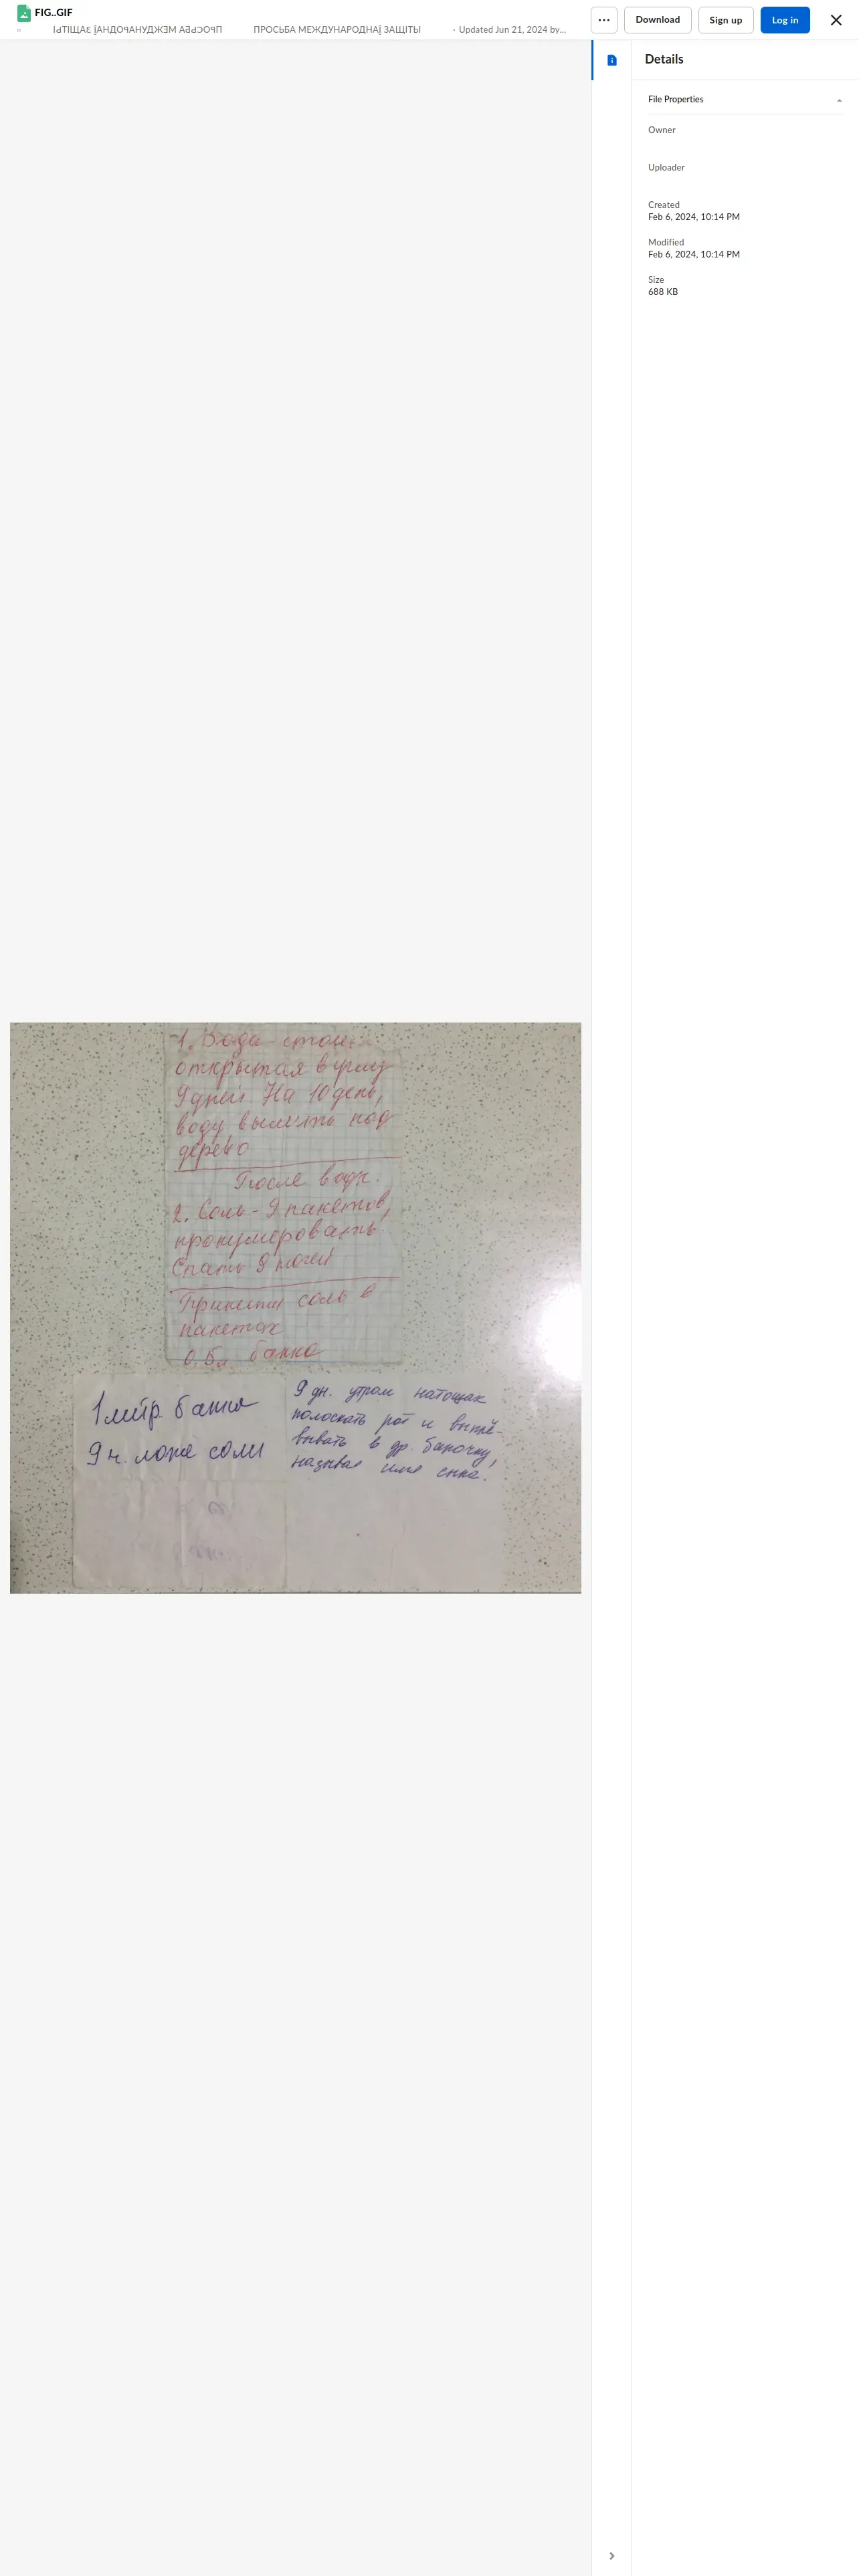 FIG..GIF
ПРОСЬБА МЕЖДУНАРОДНАЇ ЗАЩІТЫ
· Updated Jun 21, 2024 by…
Download
Sign up
Log in
Details
File Properties
Owner
Uploader
Created
Feb 6, 2024, 10:14 PM
Modified
Feb 6, 2024, 10:14 PM
Size
688 KB
1. Вода
открытая в углу
9 дней. На 10 день,
воду вылить под
дерево
После воды.
2. Соль - 9 пакетов,
пронумеровать!
Спать 9 ночей
Принести соль в
пакетах
0,5л. банка
1 литр. банка
9 ч. ложе соли
9 дн. утром натощак
полоскать рот и выплё-
вывать в др. баночку,
называя имя сына!